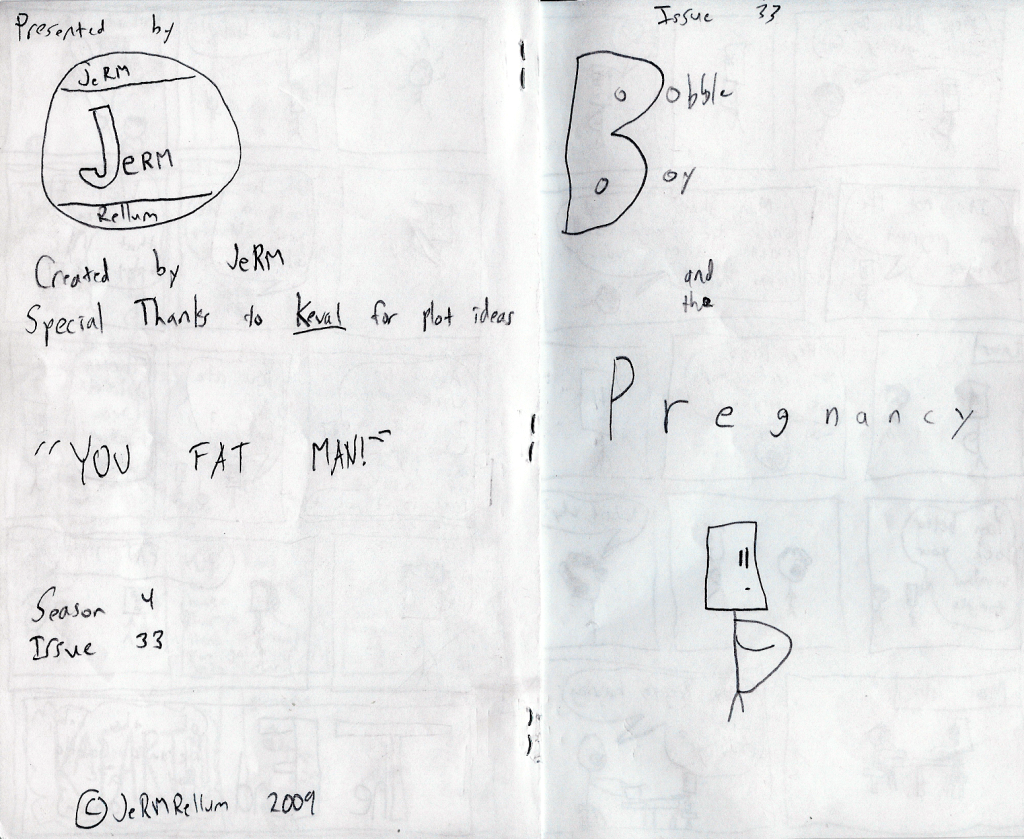 Presented by
JeRM
JeRM
Rellum
Created by JeRM
Special Thanks to Keval for plot ideas
"YOU FAT MAN!"
Season 4
Issue 33
© JeRMRellum 2009
Issue 33
Bobble
Boy
and
the
Pregnancy